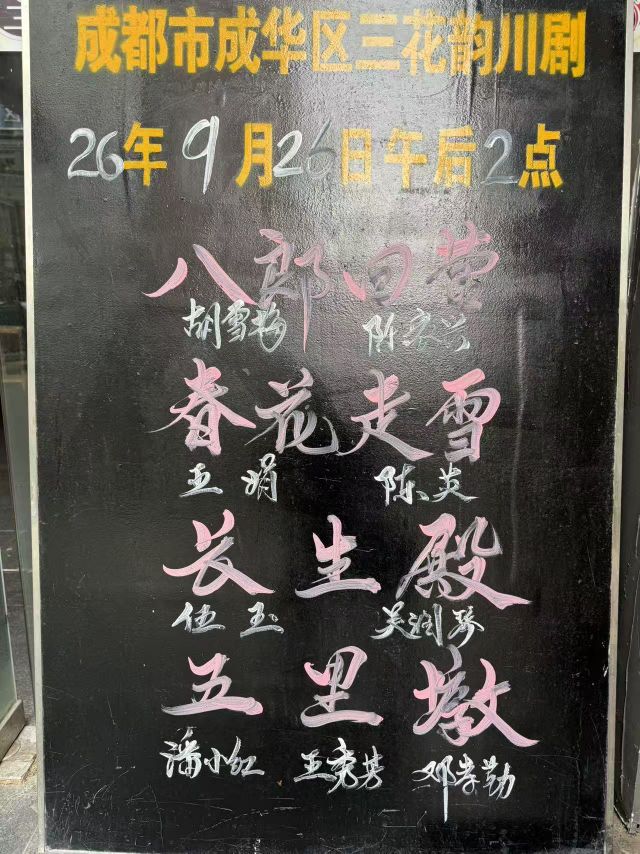 成都市成华区三花韵川剧
26年9月26日午后2点
八郎回营
胡雪梅 陈家兴
春花走雪
王娟 陈炎
长生殿
伍玉 吴润琴
五里墩
潘小红 王亮芳 邓孝勤